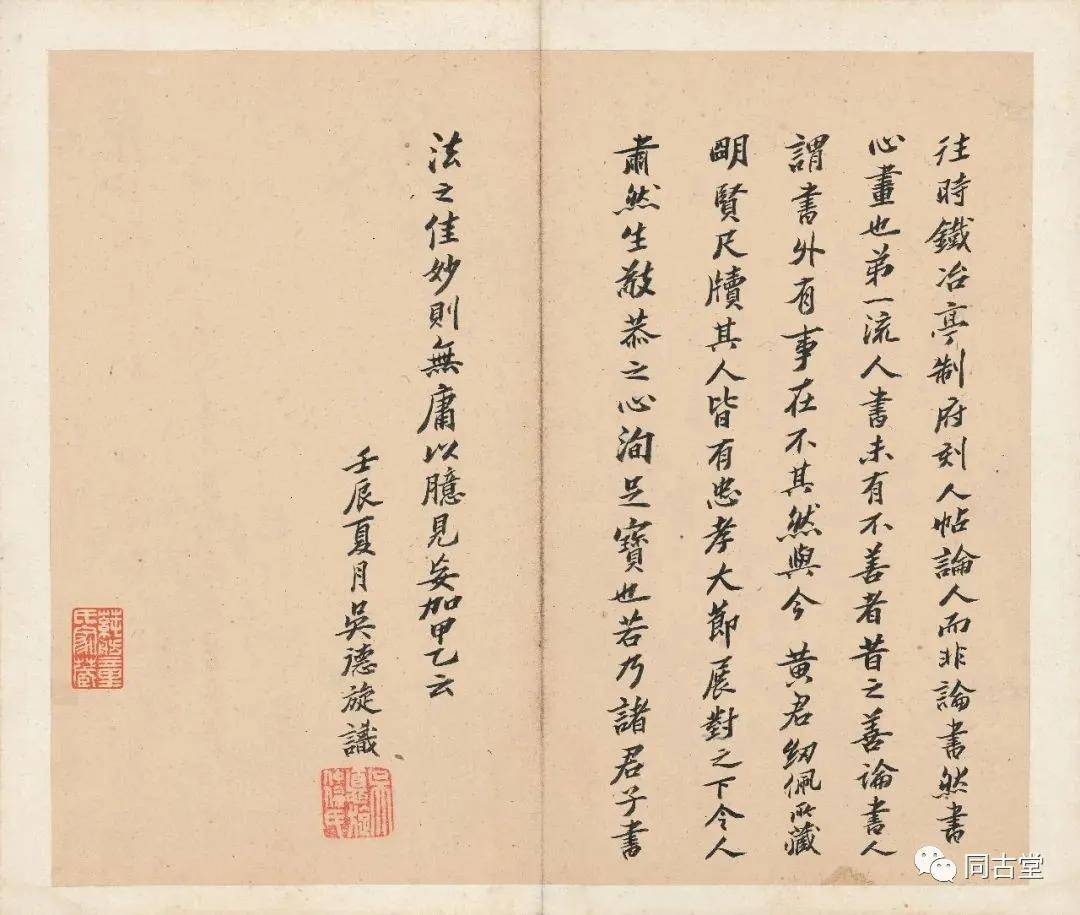 往時鐵冶亭制府刻人帖論人而非論書然書
心畫也第一流人書未有不善者昔之善論書人
謂書外有事在不其然與今黃君紉佩所藏
明賢尺牘其人皆有忠孝大節展對之下令人
肅然生敬恭之心洵足寶也若乃諸君子書
法之佳妙則無庸以臆見妄加甲乙云
壬辰夏月吳德旋識
吳德旋仲倫氏
氏家藏
同古堂